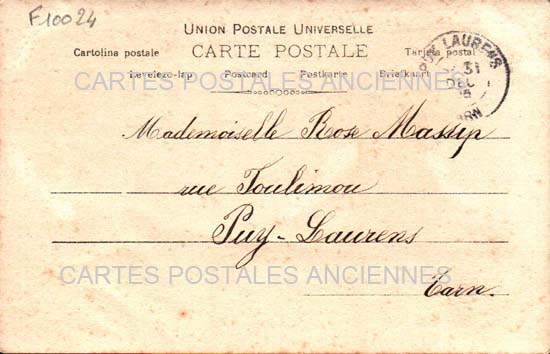 F10024
UNION POSTALE UNIVERSELLE
CARTE POSTALE
Cartolina postale
Tarjeta postal
Levelezo-lap Postcard Postkarte Briefkaart
PUY LAURENS
31
DEC
05
TARN
CARTES POSTALES ANCIENNES
Mademoiselle Rose Massip
rue Toulimou
Puy-Laurens
CARTES POSTALES ANCIENNES
Tarn.